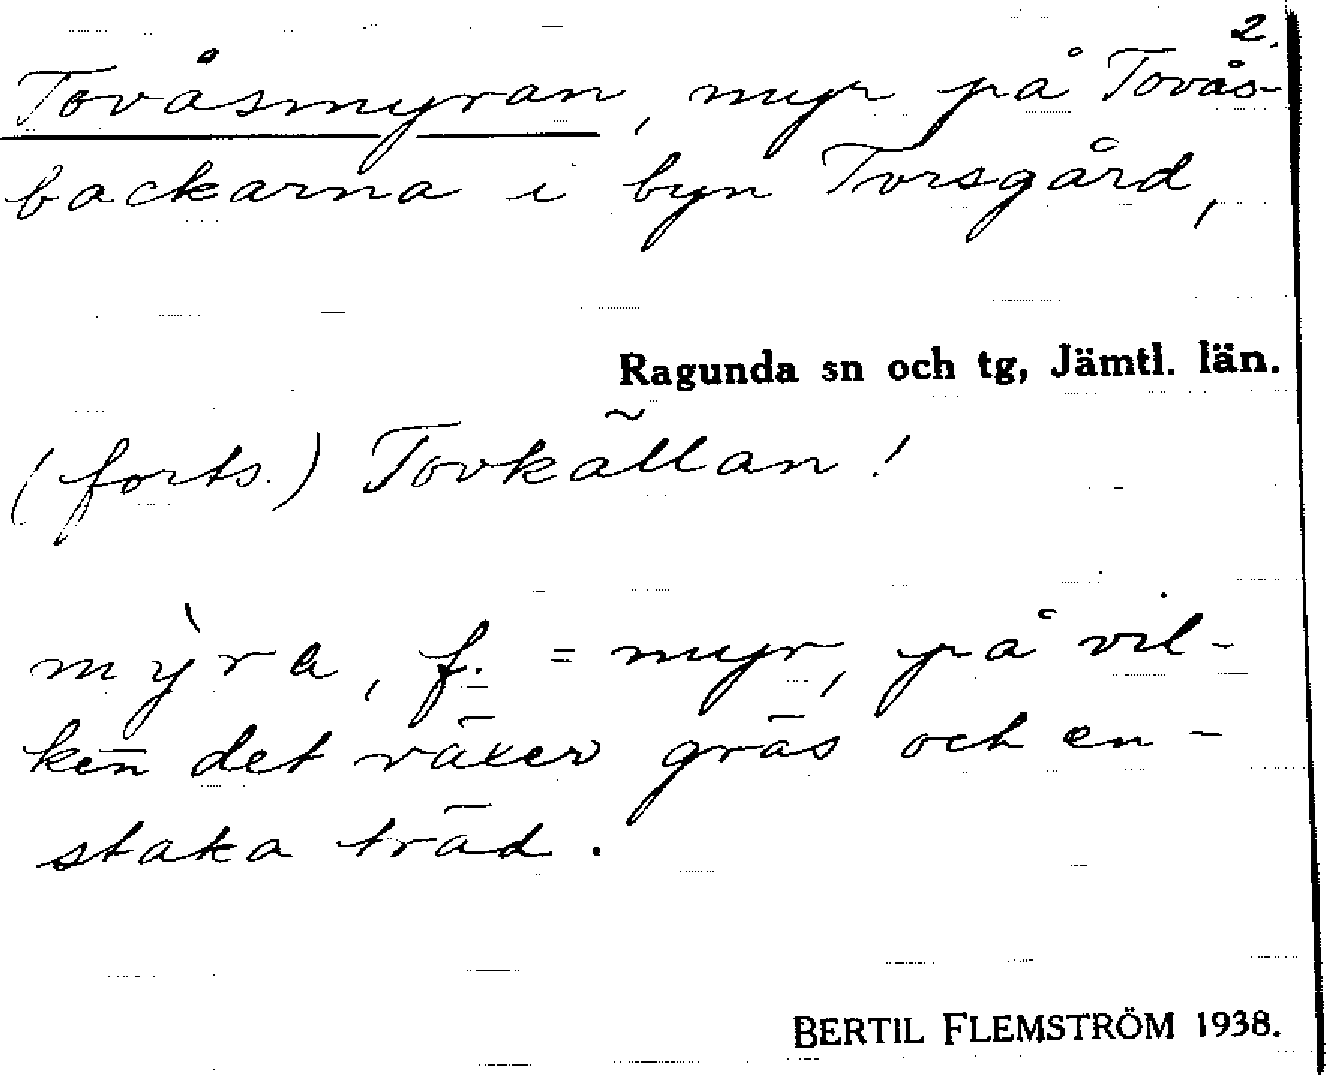 2.
Tovåsmyran, myr på Tovås-
backarna i byn Torsgård,
Ragunda sn och tg, Jämtl. län.
(forts.) Tovkällan!
mỳra, f. = myr, på vil-
ken det växer gräs och en-
staka träd.
BERTIL FLEMSTRÖM 1938.